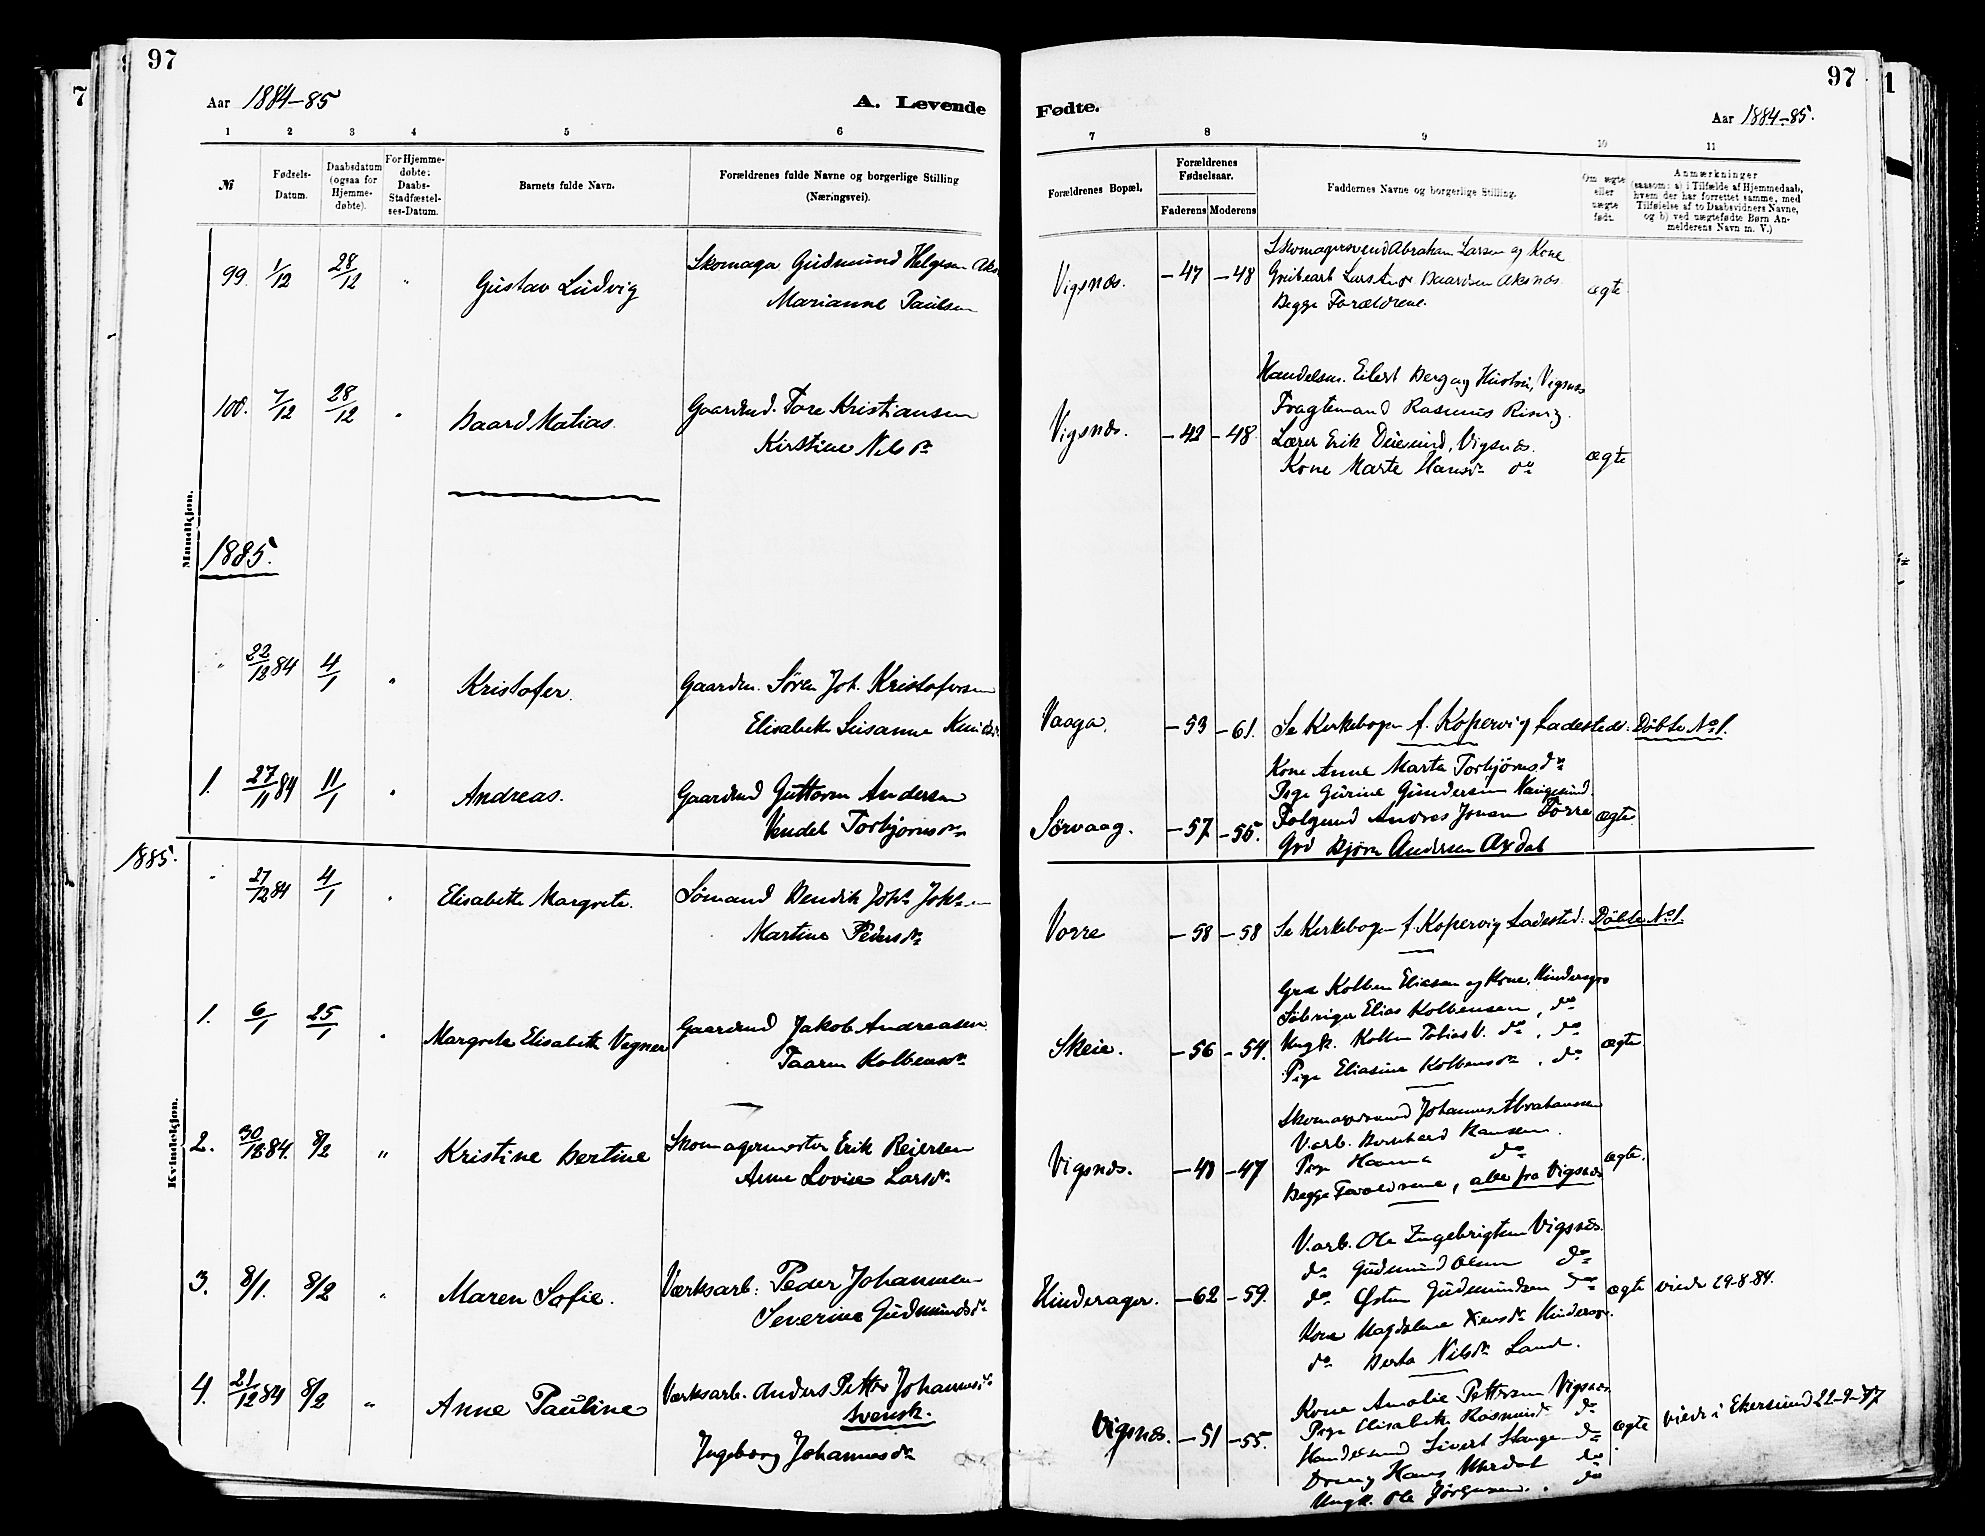 97
Aar 1884-85
A. Levende
1 2 3 4 5 6
№
Fødsels-Datum.
Daabsdatum (ogsaa for Hjemme-døbte).
For Hjemme-døbte: Daabs-Stadfæstel-ses-Datum.
Barnets fulde Navn.
Forældrenes fulde Navne og borgerlige Stilling (Næringsvei).
Mandkjøn.
99. 1/12 28/12 " Gustav Ludvig
Skomager Gudmund Helgesen
Marianne Paulsen
100. 7/12 28/12 " Baard Matias.
Gaardmd. Tore Kristiansen
Kirstine Nilsdr
1885.
" 22/12 84 4/1 " Kristofer.
Gaardm. Søren Joh. Kristofersen
Elisabeth Susanne
1. 27/11 84 11/1 " Andreas.
Gaardmd Guttorm Andersen
Vendel Torbjørnsdr
1885.
" 27/12 84 4/1 " Elisabeth Margrete.
Sømand Bendik Johs Johsen
Martine Pedersdr
Kvindekjøn.
1. 6/1 25/1 " Margrete Elisabeth Vegner
Gaardmd Jakob Andreasen
Taarin Kolbensdr
2. 30/12 84. 8/2 " Kristine Bertine
Skomagermester Erik Reiersen
Anne Lovise Larsdr
3. 8/1. 8/2 " Maren Sofie.
Værksarb: Peder Johannesen
Severine Gudmundsdr
4. 21/12 84 8/2 " Anne Pauline
Værksarb. Anders Petter Johannes
svensk.
Ingeborg Johannesdr
97
Fødte.
Aar 1884-85.
7 8 9 10 11
Forældrenes Bopæl.
Forældrenes Fødselsaar.
Faderens Moderens
Faddernes Navne og borgerlige Stilling.
Om ægte eller uægte født.
Anmærkninger
(saasom: a) i Tilfælde af Hjemmedaab,
hvem der har forrettet samme, med
Tilføielse af to Daabsvidners Navne,
og b) ved uægtefødte Børn An-
melderens Navn m. V.)
Vigsnæs. -47 -48
Skomagersvend Abraham Larsen og Kone
Grubearb Lars Baardsen Aksnæs
Begge Forældrene.
ægte
Vigsnæs. -42 -48
Handelsm. Eilert Berg og Hustru, Vigsnæs
Fragtemand Rasmus
Lærer Erik Vigsnæs.
Kone Marte Hansdr do
ægte
Vaaga. -53 -61. Se Kirkebogen f. Kopervig Ladested: Døbte No 1.
Sørvaag. -57 -55.
Kone Anne Marta Torbjørnsdr
Pige Gurine Gundersen
Andres Jonsen
Bjørn Andersen
ægte.
Vorre -58 -58 Se Kirkebogen f. Kopervig Ladested: Døbte No 1.
Skeie. -56 -54.
Kolben Eliasen og Kone, Hinderager
Elias Kolbensen, do
Ungk. Kolben Tobias V. do, do
Pige Eliasine Kolbensdr, do
ægte
Vigsnæs. -48 -47
Johannes Abrahamsen
V.arb. Bernhard Hansen.
Pige Hanna do
Begge Forældrene, alle fra Vigsnæs
ægte.
Hinderager. -62 -59.
V.arb. Ole Ingebrigtsen Vigsnæs.
do Gudmund Olsen do
do Østen Gudmundsen do
Kone Magdalene Hinderager.
do Berta Nilsdr Sand.
ægte viede 29-8-84.
Vigsnæs. -51 -55.
Kone Amalie Pettersen Vigsnæs
Pige Elisabeth do
Sivert Stange do
Dreng Hans do
Ungk. Ole Jørgensen. do
ægte viede i Ekersund 22-9-77